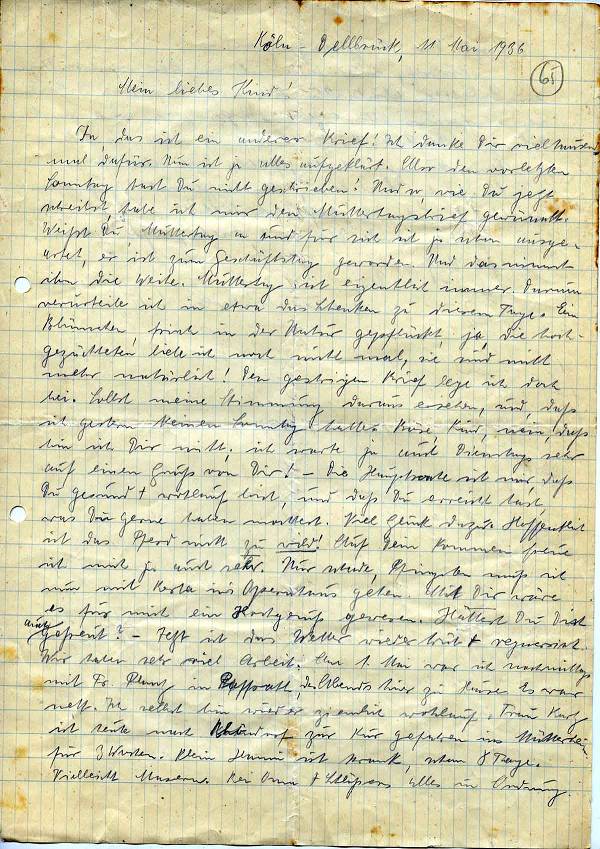 Köln-Dellbrück, 11 Mai 1936
65
Mein liebes Kind!
Ja das ist ein anderer Brief! Ich danke Dir vieltausend
mal dafür. Nun ist ja alles aufgeklärt. Also den vorletzten
Sonntag hast Du nicht geschrieben! Und so, wie Du jetzt
schreibst, habe ich mir den Muttertagsbrief gewünscht.
Weißt Du Muttertag an und für sich ist ja schon ausge-
artet, er ist zum Geschäftstag geworden. Und das nimmt
ihm die Weihe. Muttertag ist eigentlich immer. Darum
verurteile ich in etwa das Schenken zu diesem Tage. Ein
Blümchen, frisch in der Natur gepflückt, ja, die hoch-
gezüchteten liebe ich noch nicht mal, sie sind nicht
mehr natürlich! Den gestrigen Brief lege ich doch
bei. Sollst meine Stimmung daraus ersehen, und, daß
ich gestern keinen Sonntag hatte. Böse, Kind, nein, das
bin ich Dir nicht. ich warte ja auch Dienstags sehr
auf einen Gruß von Dir! – Die Hauptsache ist mir, daß
Du gesund + wohlauf bist, und daß Du erreicht hast,
was Du gerne haben möchtest. Viel Glück dazu. Hoffentlich
ist das Pferd nicht zu wild! Auf Dein Kommen freue
ich mich ja auch sehr. Nur schade, Pfingsten muß ich
nun mit Herta ins Opernhaus gehen. Mit Dir wäre
es für mich ein Hochgenuß gewesen. Hättest Du Dich
auch gefreut? – Jetzt ist das Wetter wieder trüb + regnerisch.
Wir haben sehr viel Arbeit. Am 1. Mai war ich nachmittags
mit Fr. in des Abends hier zu Hause. Es war
nett. Ich selbst bin wieder ziemlich wohlauf. Frau
ist heute nach zur Kur gefahren ins Mütterheim
für 3 Wochen. Klein ist krank, schon 8 Tage.
Vielleicht Masern. Bei Oma + alles in Ordnung.